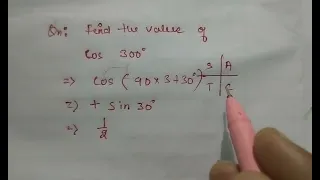 Qn: Find the value of
cos 300°
⇒ cos (90×3+30°)
S A
T C
⇒ + sin 30°
⇒ 1/2